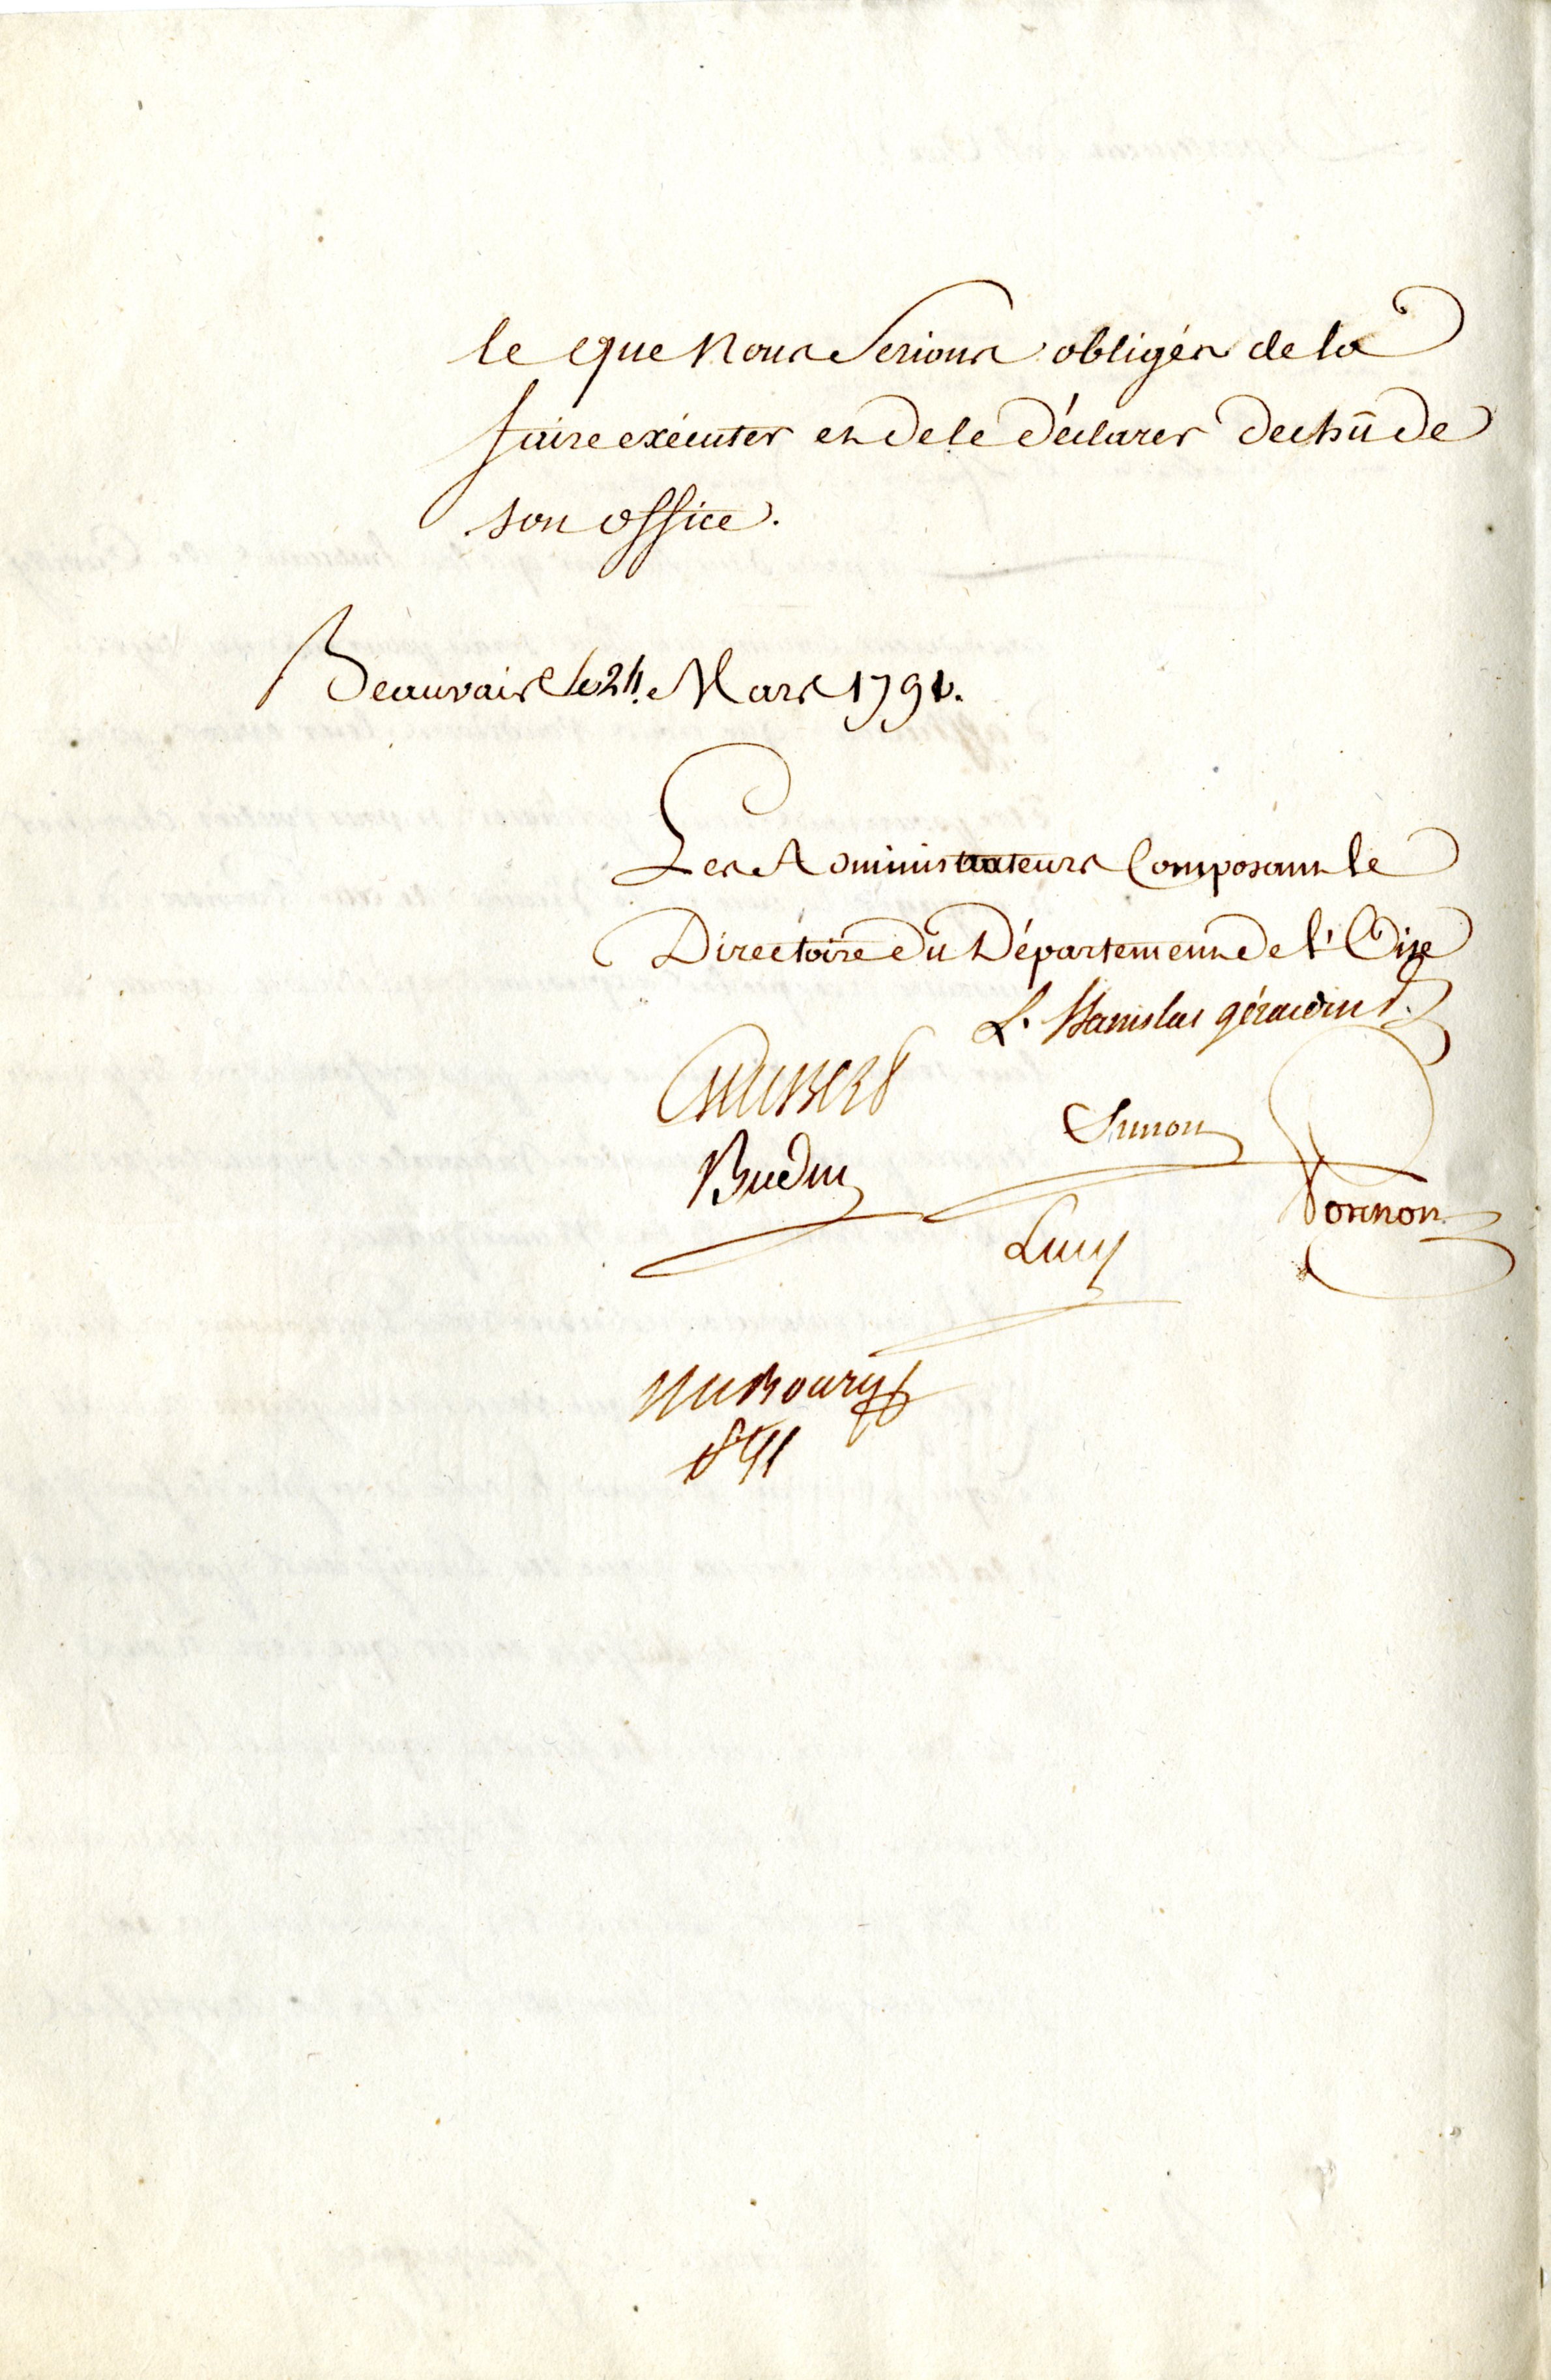 le que Nous Serions obligés de la
faire exécuter et de le déclarer dechû de
son office.
Beauvais le 24. Mars 1791.
Les Administrateurs Composant le
Directoire du Département de l'Oise
L. Stanislas girardin
Simon
Budin
Tonnon
Lucy
Dubourg